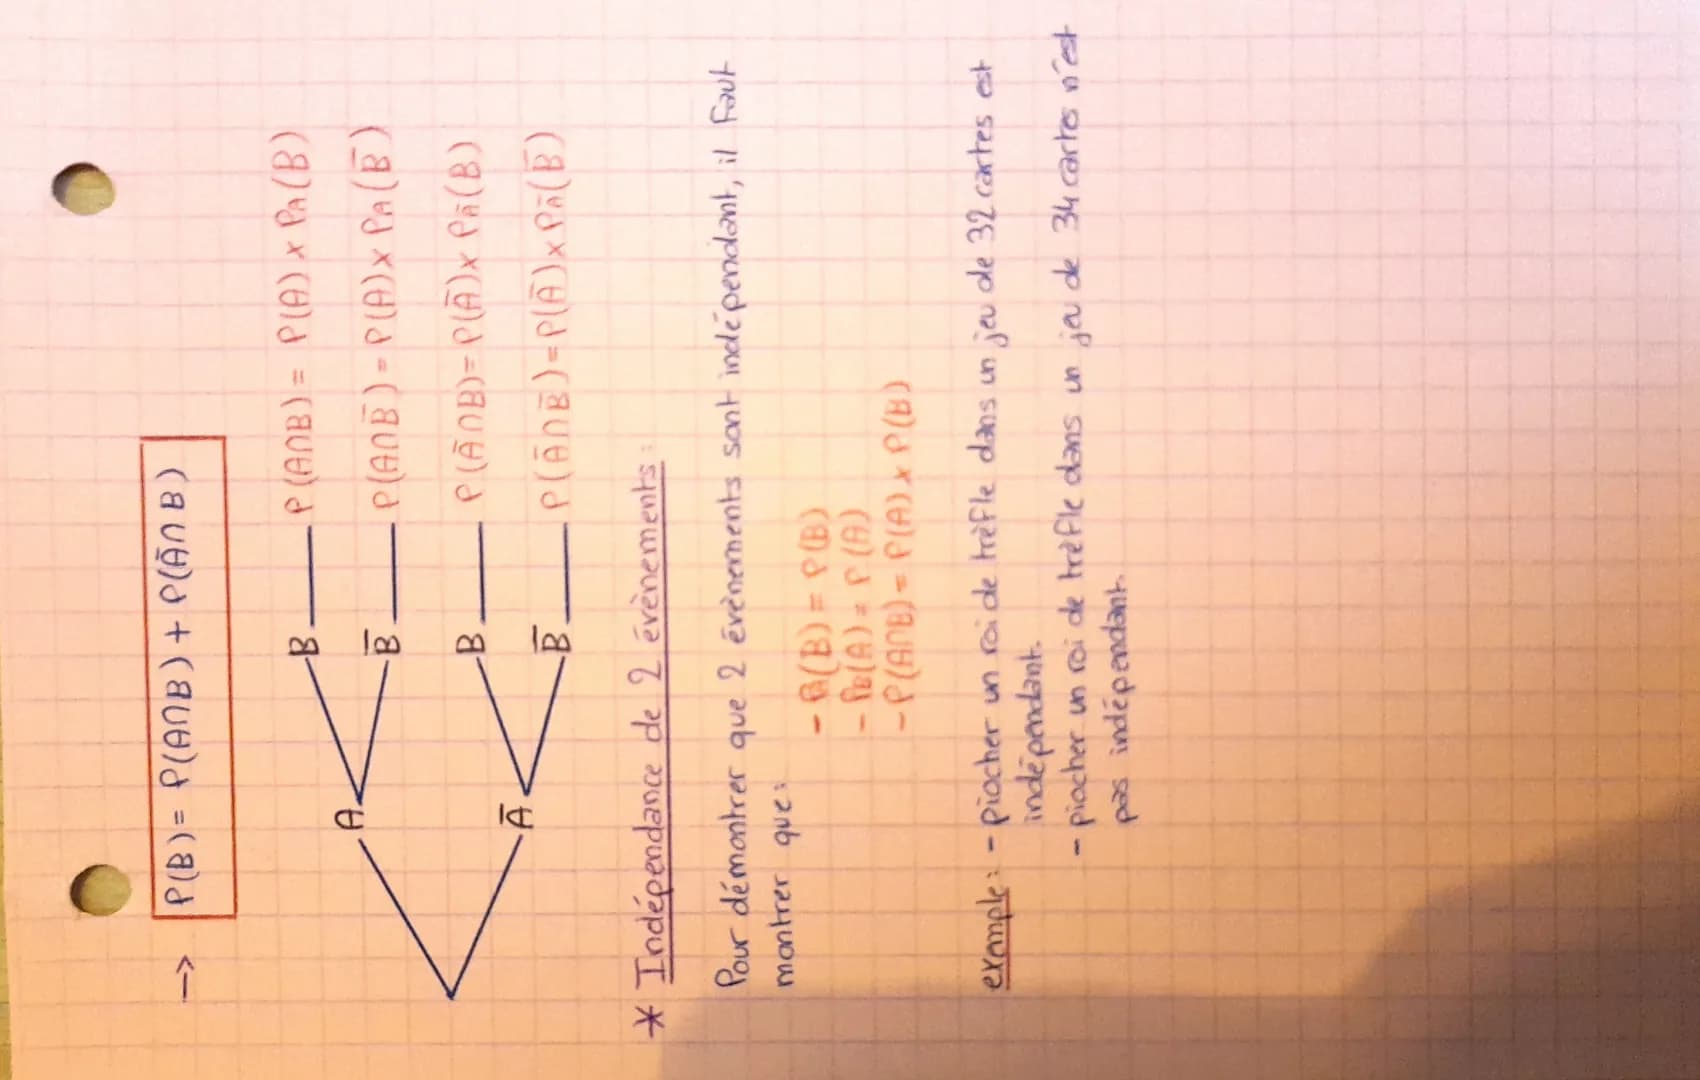 → P(B) = P(A∩B) + P(Ā∩B)
B — P(A∩B) = P(A) x PA(B)
A
B̄ — P(A∩B̄) = P(A) x PA(B̄)
B — P(Ā∩B) = P(Ā) x PĀ(B)
Ā
B̄ — P(Ā∩B̄) = P(Ā) x PĀ(B̄)
* Indépendance de 2 évènements :
Pour démontrer que 2 évènements sont indépendant, il faut
montrer que :
- PA(B) = P(B)
- PB(A) = P(A)
- P(A∩B) = P(A) x P(B)
exemple : - piocher un roi de trèfle dans un jeu de 32 cartes est
indépendant.
- piocher un roi de trèfle dans un jeu de 34 cartes n'est
pas indépendant.